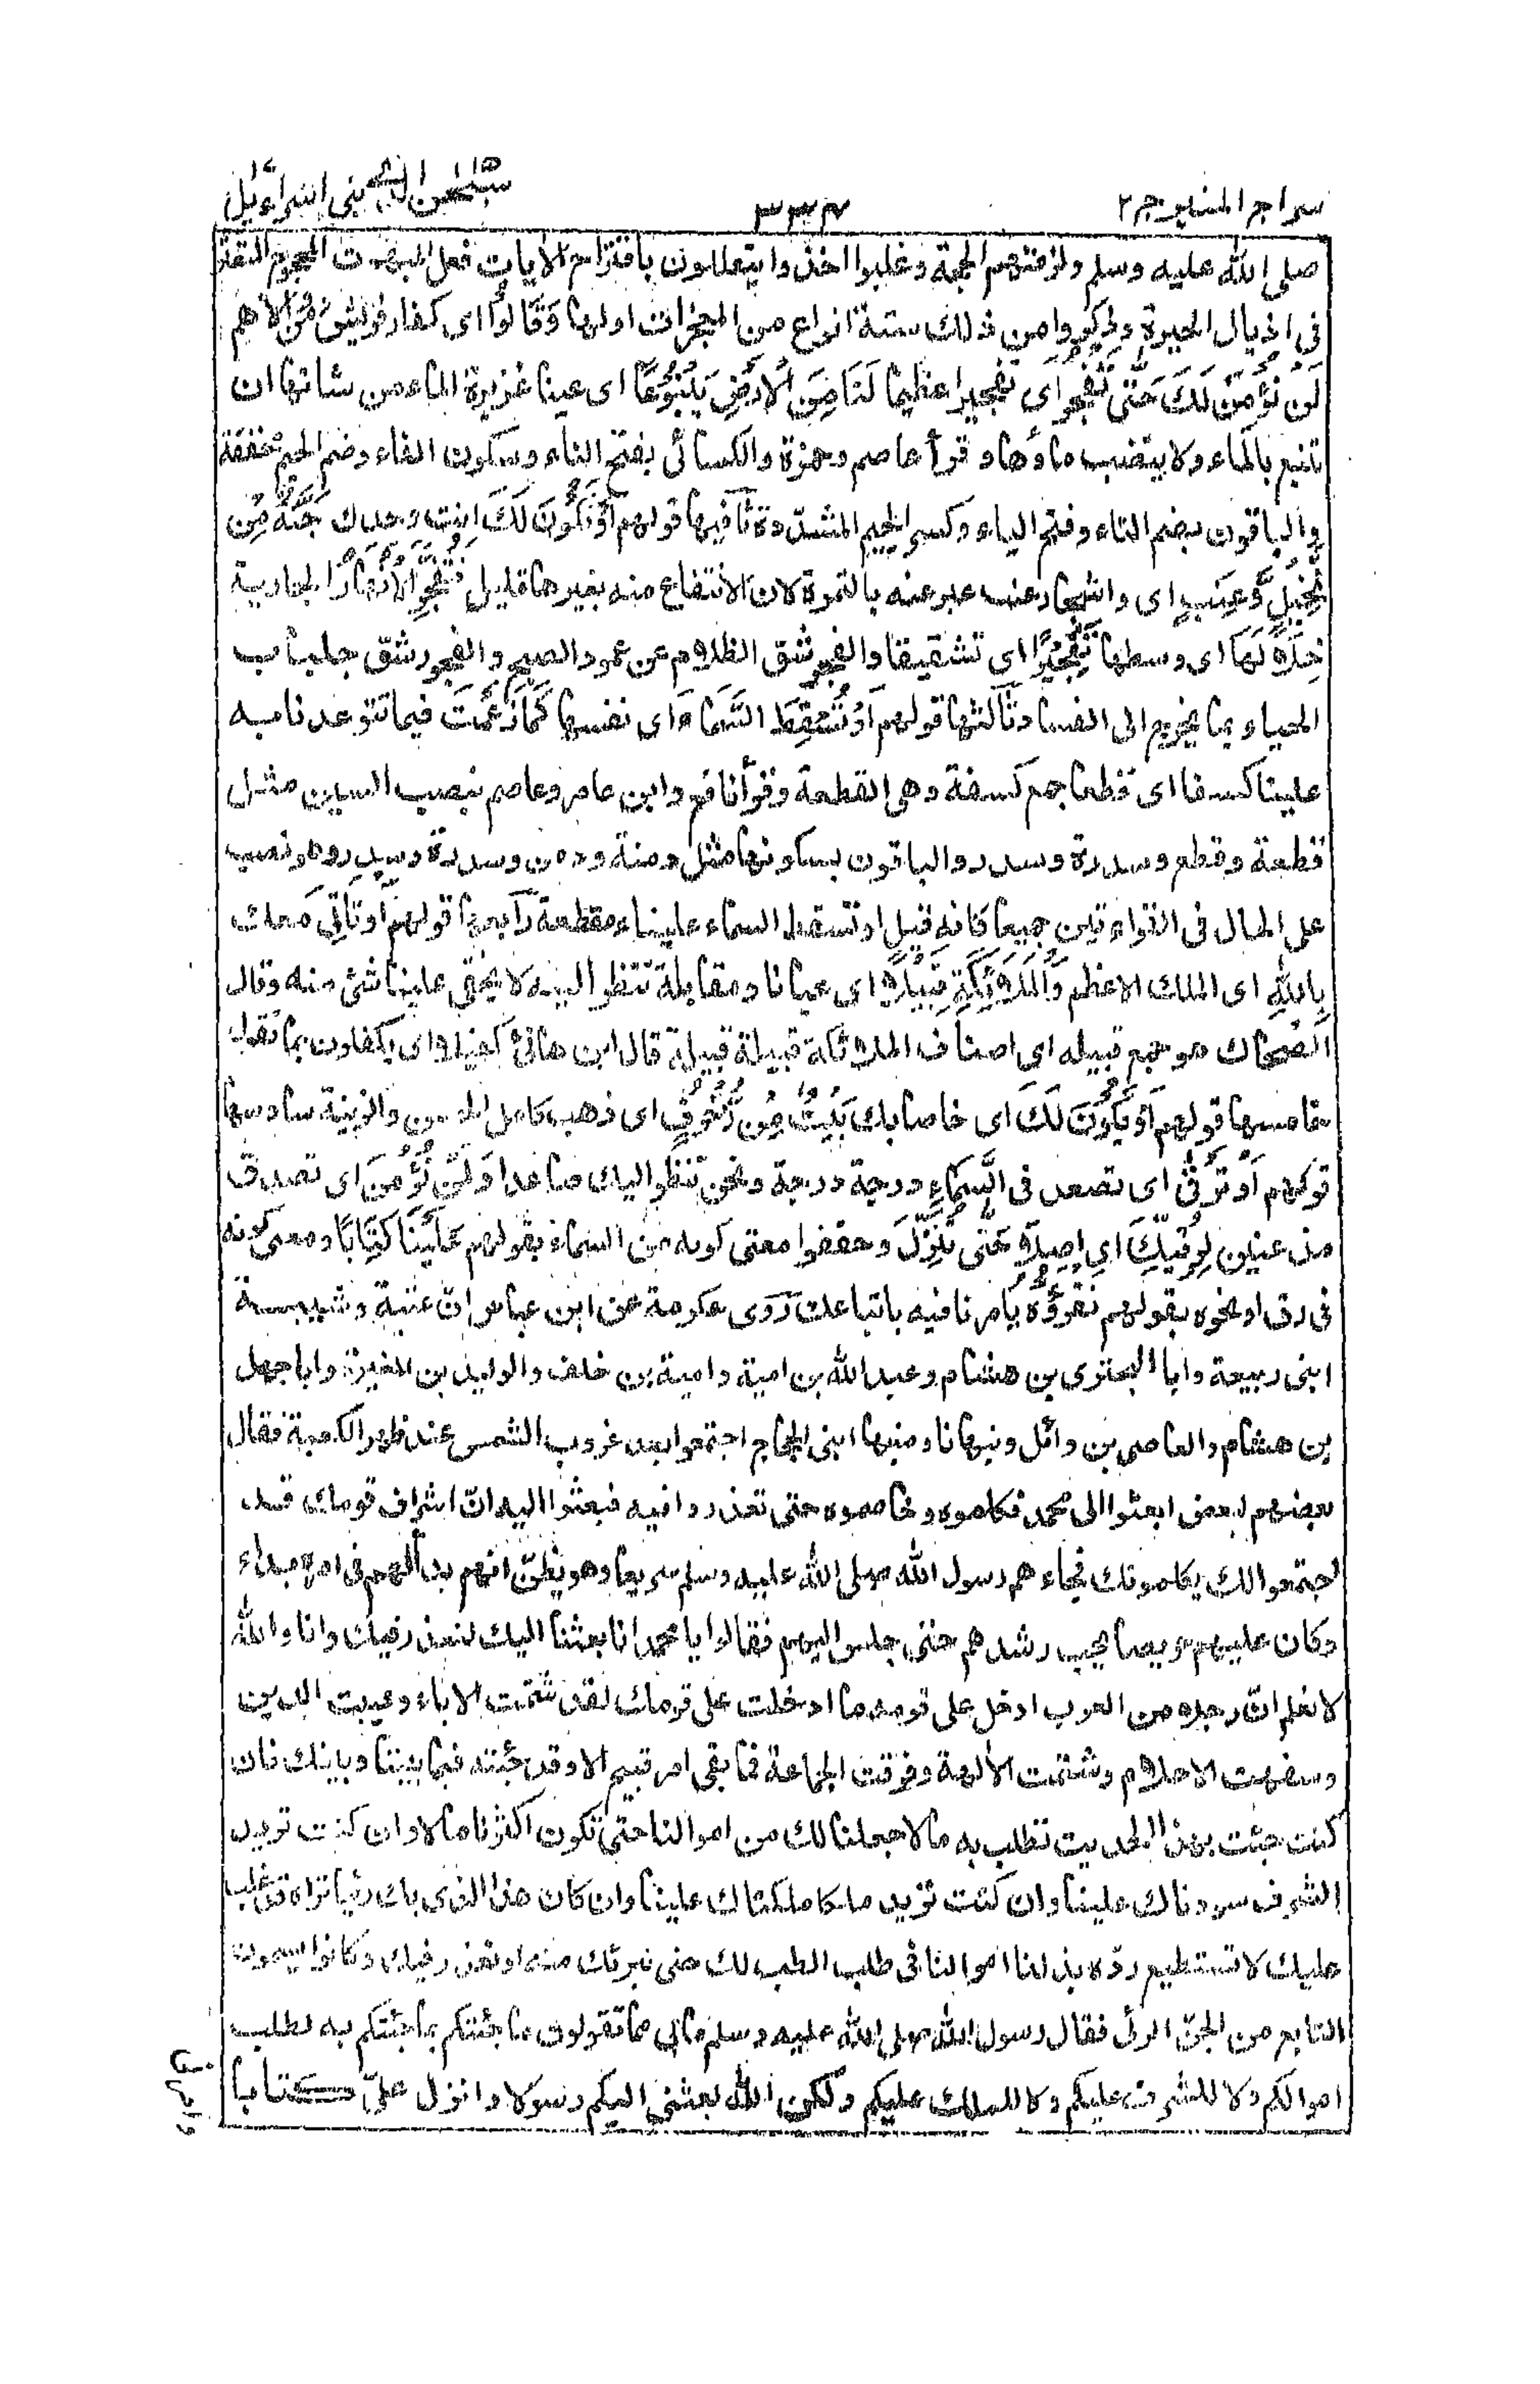 سراج المنير ج ٢
٣٣٤
سبحٰن الذی بنی اسرائیل
صلى الله عليه وسلم ولزمتهم الحجة وغلبوا اخذوا يتعللون باقتراح الآيات فعل المبهوت المحجوج المتعثر
فى اذيال الحيرة وذكروا من ذلك ستة انواع من المعجزات اولها وَقَالُوْا اى كفار قريش ومن والاهم
لَنْ نُؤْمِنَ لَكَ حَتّٰى تَفْجُرَ اى تفجيرا عظيما لَنَا مِنَ الْاَرْضِ يَنْۢبُوْعًا اى عينا غزيرة الماء من شانها ان
تنبع بالماء ولا ينضب ماؤها وقرأ عاصم وحمزة والكسائى بفتح التاء وسكون الفاء وضم الجيم مخففة
والباقون بضم التاء وفتح الياء وكسر الجيم المشددة ثانيها قولهم اَوْ تَكُوْنَ لَكَ انت وحدك جَنَّةٌ مِّنْ
نَّخِيْلٍ وَّعِنَبٍ اى واشجار عنب عبر عنه بالثمرة لان الانتفاع منه بغيرها قليل فَتُفَجِّرَ الْاَنْهَارَ الجارية
خِلٰلَهَا اى وسطها تَفْجِيْرًا اى تشقيقا والفجر شق الظلام عن عمود الصبح والفجور شق جلباب
الحياء بما يخرج الى الفساد ثالثها قولهم اَوْ تُسْقِطَ السَّمَآءَ اى نفسها كَمَا زَعَمْتَ فيما تتوعدنا به
علينا كسفا اى قطعا جمع كسفة وهى القطعة وقرأ نافع وابن عامر وعاصم بنصب السين مثل
قطعة وقطع وسدرة وسدر والباقون بسكونها مثل دمنة ودمن وسدرة وسدر وهو نصب
على الحال فى القراءتين جميعا كانه قيل او تسقط السماء علينا مقطعة رابعها قولهم اَوْ تَاْتِىَ معك
بِاللهِ اى الملك الاعظم وَالْمَلٰٓئِكَةِ قَبِيْلًا اى عيانا ومقابلة ننظر اليه لا يخفى علينا شئ منه وقال
الضحاك هو جمع قبيله اى اصناف الملائكة قبيلة قبيلة قال ابن هانئ كفيلا اى يكفلون بما تقول
خامسها قولهم اَوْ يَكُوْنَ لَكَ اى خاصا بك بَيْتٌ مِّنْ زُخْرُفٍ اى ذهب كامل الحسن والزينة سادسها
قولهم اَوْ تَرْقٰى اى تصعد فى السَّمَآءِ درجة درجة ونحن ننظر اليك صاعدا وَلَنْ نُّؤْمِنَ اى نصدق
مذعنين لِرُقِيِّكَ اى اصلا حَتّٰى تُنَزِّلَ وحققوا معنى كونه من السماء بقولهم عَلَيْنَا كِتَابًا ومعنى كونه
فى رق او نحوه بقولهم نَقْرَؤُهٗ يامرنا فيه باتباعك روى عكرمة عن ابن عباس انّ عتبة وشيبة
ابنى ربيعة وابا البحترى بن هشام وعبد الله بن امية وامية بن خلف والوليد بن المغيرة وابا جهل
بن هشام والعاصى بن وائل ونبيها ومنبها ابنى الحجاج اجتمعوا بعد غروب الشمس عند ظهر الكعبة فقال
بعضهم لبعض ابعثوا الى محمد فكلموه وخاصموه حتى تعذروا فيه فبعثوا اليه انّ اشراف قومك قد
اجتمعوا لك يكلمونك فجاءهم رسول الله صلى الله عليه وسلم سريعا وهو يظنّ انهم بدألهم فى امره بداء
وكان عليهم حريصا يحب رشدهم حتى جلس اليهم فقالوا يا محمد انا بعثنا اليك لنعذر فيك وانا والله
لا نعلم انّ رجلا من العرب ادخل على قومه ما ادخلت على قومك لقد شتمت الآباء وعيبت الدين
وسفهت الاحلام وشتمت الآلهة وفرقت الجماعة فما بقى امر قبيح الا وقد جئته فيما بيننا وبينك فان
كنت جئت بهذا الحديث تطلب به مالا جعلنا لك من اموالنا حتى تكون اكثرنا مالا وان كنت تريد
الشرف سودناك علينا وان كنت تريد ملكا ملكناك علينا وان كان هذا الذى بك رئيا تراه قد غلب
عليك لا تستطيع ردّه بذلنا اموالنا فى طلب الطب لك حتى نبرئك منه او نعذر فيك وكانوا يسمون
التابع من الجنّ الرئى فقال رسول الله صلى الله عليه وسلم مابى مما تقولون ما جئتكم بما جئتكم به لطلب
اموالكم ولا للشرف عليكم ولا للملك عليكم ولكن الله بعثنى اليكم رسولا وانزل علىّ كتابا